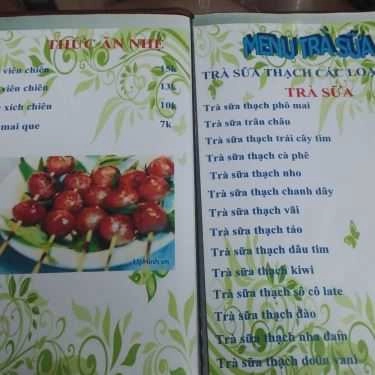 THỨC ĂN NHẸ
viên chiên 15k
viên chiên 13k
xích chiên 10k
mai que 7k
MENU TRÀ SỮA
TRÀ SỮA THẠCH CÁC LOẠ
TRÀ SỮA
Trà sữa thạch phô mai
Trà sữa trân châu
Trà sữa thạch trái cây tím
Trà sữa thạch cà phê
Trà sữa thạch nho
Trà sữa thạch chanh dây
Trà sữa thạch vải
Trà sữa thạch táo
Trà sữa thạch dâu tím
Trà sữa thạch kiwi
Trà sữa thạch sô cô late
Trà sữa thạch đào
Trà sữa thạch nha đam
Trà sữa thạch